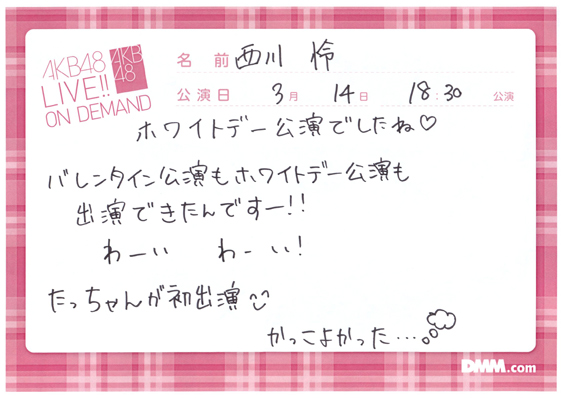 AKB48
LIVE!!
ON DEMAND
AKB
48
名前 西川 怜
公演日 3月 14日 18:30 公演
ホワイトデー公演でしたね♡
バレンタイン公演もホワイトデー公演も
出演できたんですー!!
わーい わーい!
たっちゃんが初出演
かっこよかった…
DMM.com